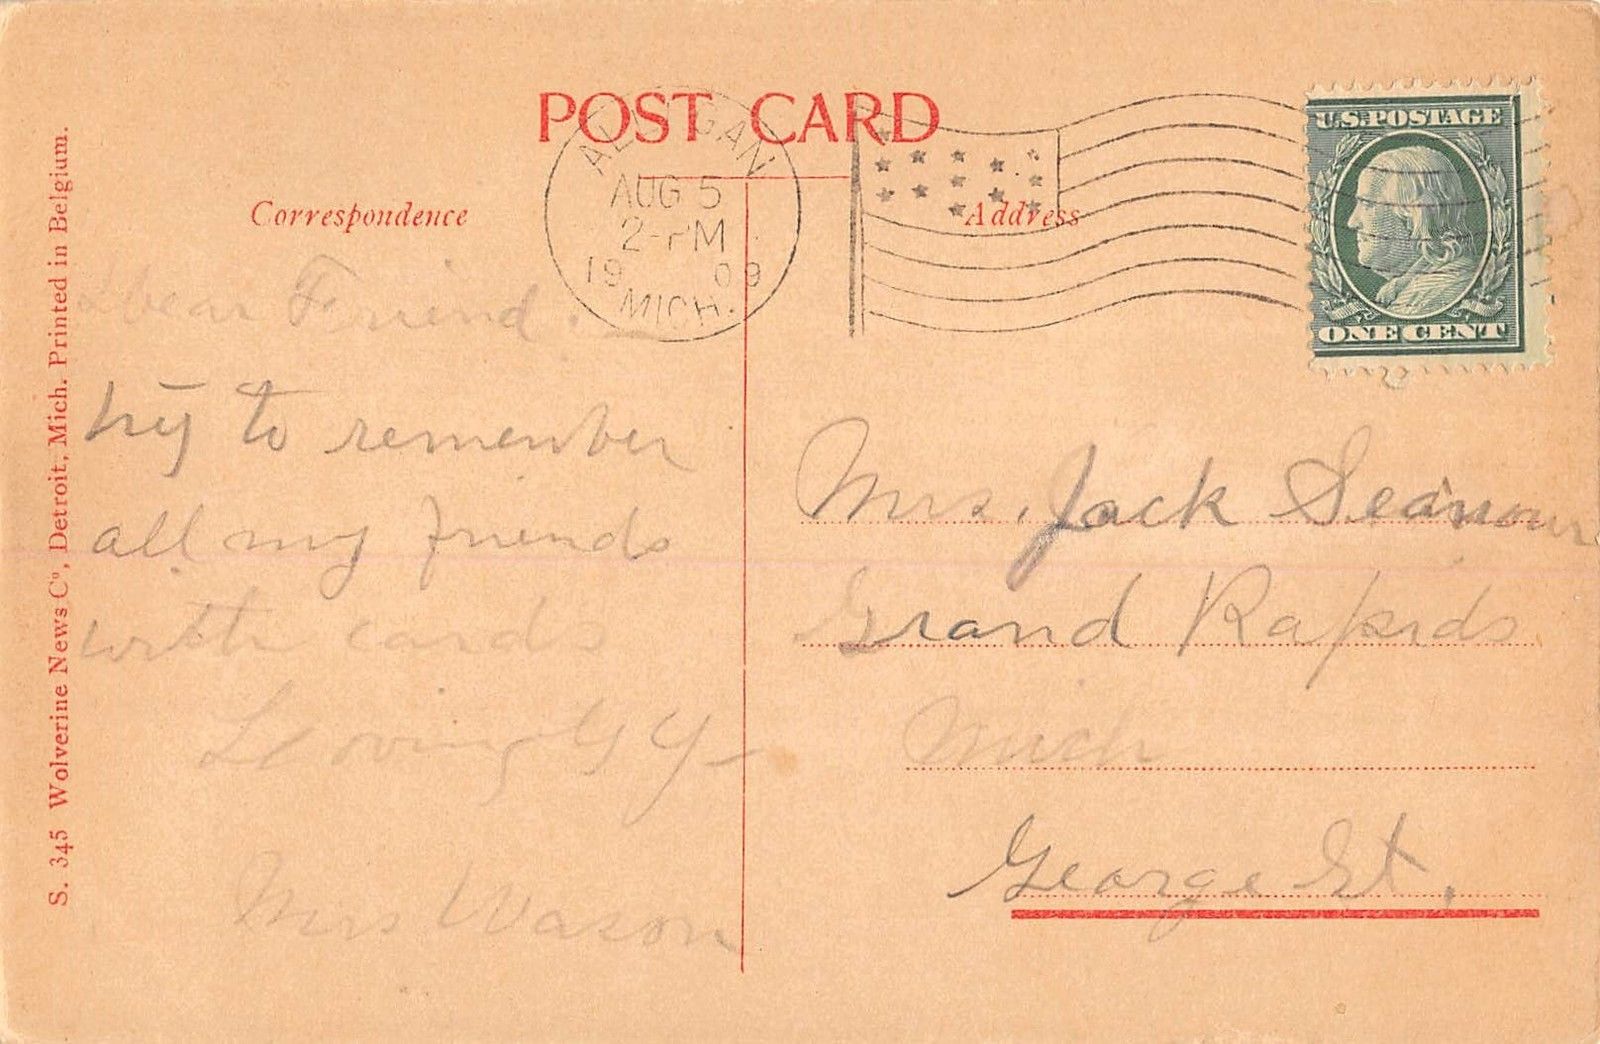 POST CARD
Correspondence
Address
ALLEGAN
AUG 5
2-PM
1909
MICH.
U.S. POSTAGE
ONE CENT
Dear Friend.
try to remember
all my friends
with cards
Lovingly
Mrs Wason
Mrs. Jack Seamour
Grand Rapids
Mich
George St.
S. 345 Wolverine News Cº, Detroit, Mich. Printed in Belgium.